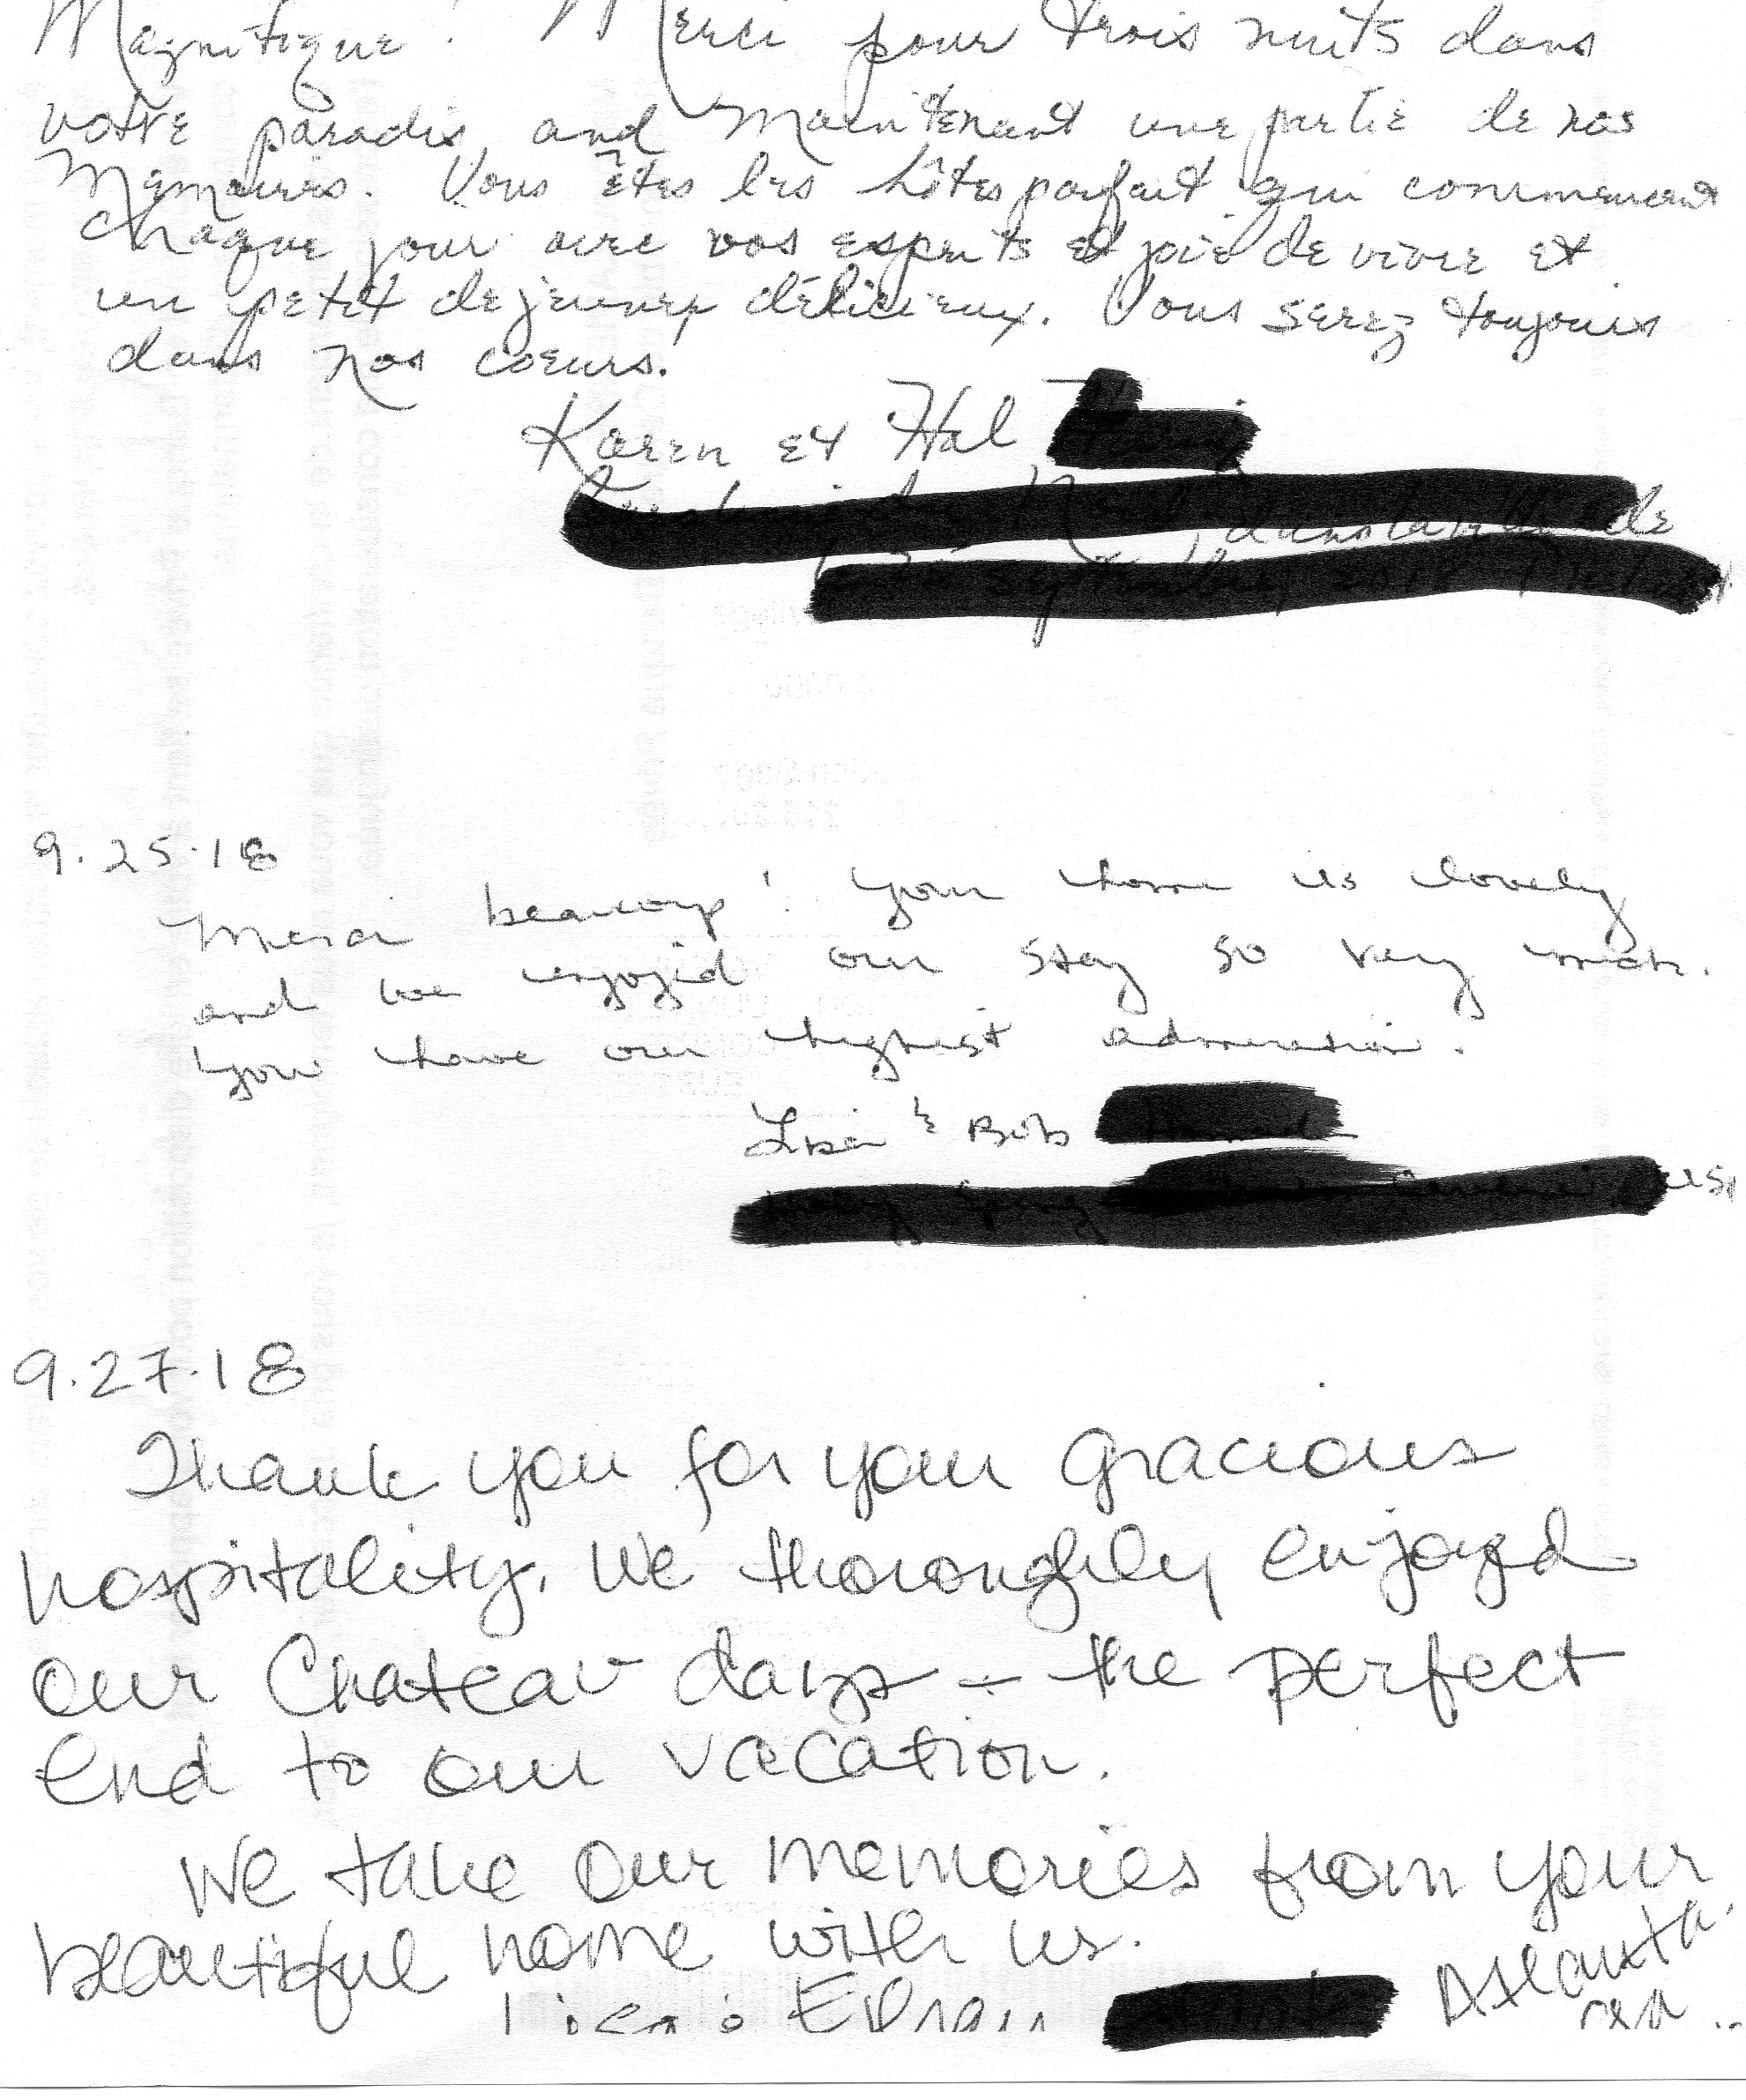 Magnifique! Merci pour trois nuits dans
votre paradis, and maintenant une partie de nos
Memoires. Vous êtes les hôtes parfait qui commencent
chaque jour avec vos esprits et joie de vivre et
un petit dejeuner délicieux. Vous serez toujours
dans nos coeurs.
Karen et Hal
dans la ville de
9.25.18
Merci beaucoup! Your home is lovely
and we enjoyed our stay so very much.
You have our highest admiration.
& Bob
9.27.18
Thank you for your gracious
hospitality. We thoroughly enjoyed
our Chateau days - the perfect
end to our vacation.
We take our memories from your
beautiful home with us.
Atlanta